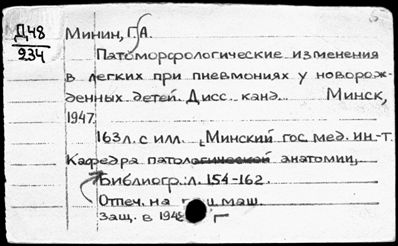 Д48
934
Минин, Г.А.
Патоморфологические изменения
в легких при пневмониях у новорож-
денных детей. Дисс. канд. Минск,
1947.
163 л. с илл. (Минский гос. мед. ин-т.
Кафедра патологической анатомии).
Библиогр.: л. 154-162.
Отпеч. на маш.
Защ. в 194 г